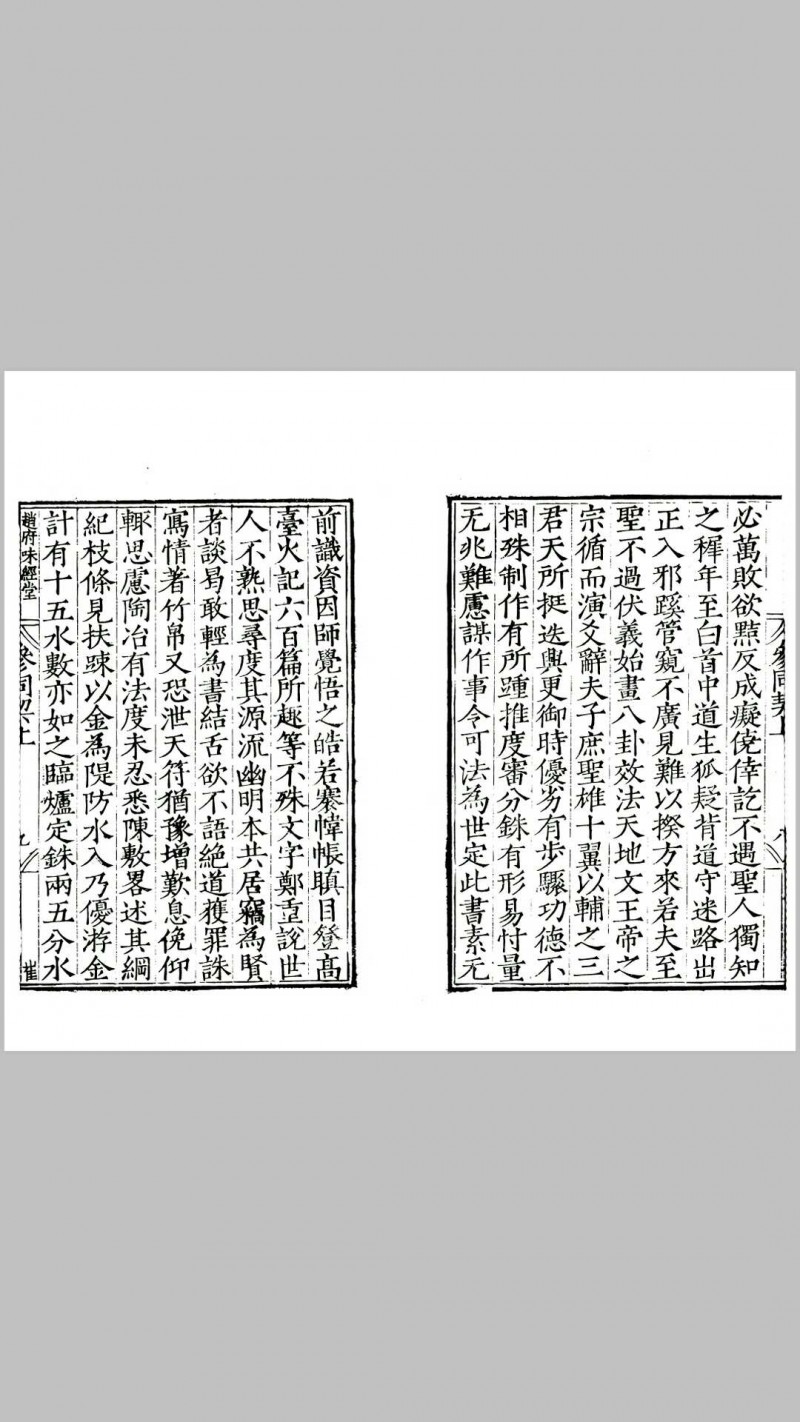 必萬敗欲黠反成癡僥倖訖不遇聖人獨知
之穉年至白首中道生狐疑背道守迷路出
正入邪蹊管窺不廣見難以揆方來若夫至
聖不過伏羲始畫八卦效法天地文王帝之
宗循而演爻辭夫子庶聖雄十翼以輔之三
君天所挺迭興更御時優劣有步驟功德不
相殊制作有所踵推度審分銖有形易忖量
无兆難慮謀作事令可法為世定此書素无
前識資因師覺悟之皓若褰幃帳瞋目登髙
臺火記六百篇所趣等不殊文字鄭重說世
人不熟思尋度其源流幽明本共居竊為賢
者談曷敢輕為書結舌欲不語絕道獲罪誅
寫情著竹帛又恐泄天符猶豫增歎息俛仰
輙思慮陶冶有法度未忍悉陳敷畧述其綱
紀枝條見扶踈以金為隄防水入乃優游金
計有十五水數亦如之臨爐定銖兩五分水
趙府味經堂
參同契上
九
崔